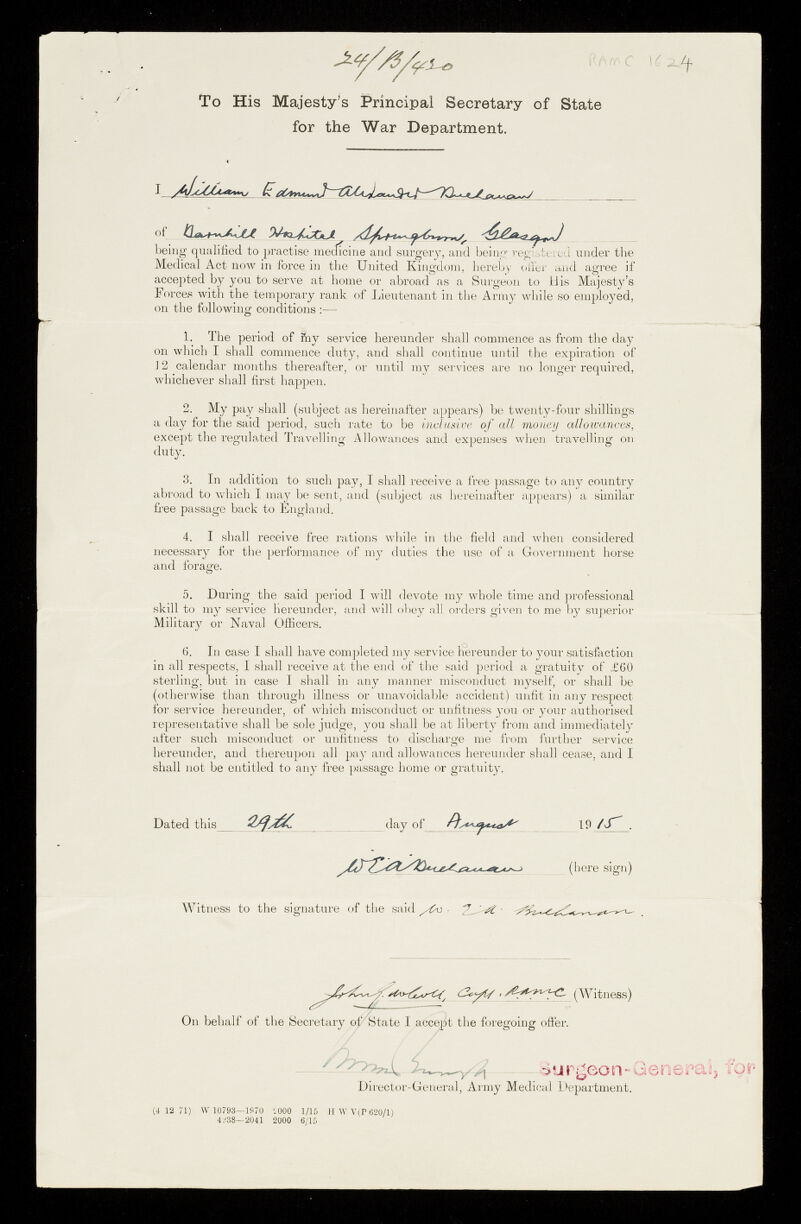 24/B/420
RAMC 1624
To His Majesty's Principal Secretary of State
for the War Department.
I William Edmund Alexander Buchanan
of Barnhill Hospital, Springburn, Glasgow
being qualified to practise medicine and surgery, and being registered under the
Medical Act now in force in the United Kingdom, hereby offer and agree if
accepted by you to serve at home or abroad as a Surgeon to His Majesty's
Forces with the temporary rank of Lieutenant in the Army while so employed,
on the following conditions:—
1. The period of my service hereunder shall commence as from the day
on which I shall commence duty, and shall continue until the expiration of
12 calendar months thereafter, or until my services are no longer required,
whichever shall first happen.
2. My pay shall (subject as hereinafter appears) be twenty-four shillings
a day for the said period, such rate to be inclusive of all money allowances,
except the regulated Travelling Allowances and expenses when travelling on
duty.
3. In addition to such pay, I shall receive a free passage to any country
abroad to which I may be sent, and (subject as hereinafter appears) a similar
free passage back to England.
4. I shall receive free rations while in the field and when considered
necessary for the performance of my duties the use of a Government horse
and forage.
5. During the said period I will devote my whole time and professional
skill to my service hereunder, and will obey all orders given to me by superior
Military or Naval Officers.
6. In case I shall have completed my service hereunder to your satisfaction
in all respects, I shall receive at the end of the said period a gratuity of £60
sterling, but in case I shall in any manner misconduct myself, or shall be
(otherwise than through illness or unavoidable accident) unfit in any respect
for service hereunder, of which misconduct or unfitness you or your authorised
representative shall be sole judge, you shall be at liberty from and immediately
after such misconduct or unfitness to discharge me from further service
hereunder, and thereupon all pay and allowances hereunder shall cease, and I
shall not be entitled to any free passage home or gratuity.
Dated this 29th day of August 1915.
W E A Buchanan (here sign)
Witness to the signature of the said W. E. A. Buchanan.
John Capt. RAMC (Witness)
On behalf of the Secretary of State I accept the foregoing offer.
Surgeon-General, for
Director-General, Army Medical Department.
(4 12 71) W 10793—1970 2000 1/15 H W V(P 620/1)
4238—2041 2000 6/15